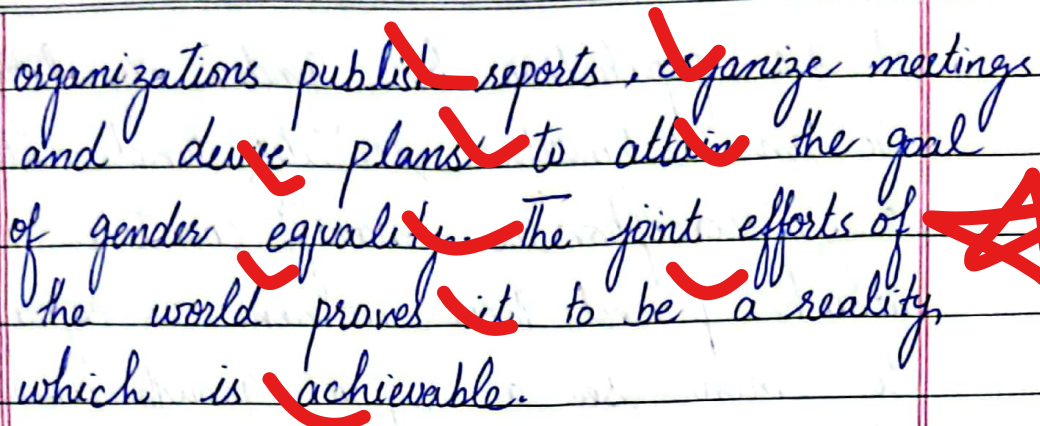 organizations publish reports, organize meetings
and devise plans to attain the goal
of gender equality. The joint efforts of
the world proves it to be a reality,
which is achievable.